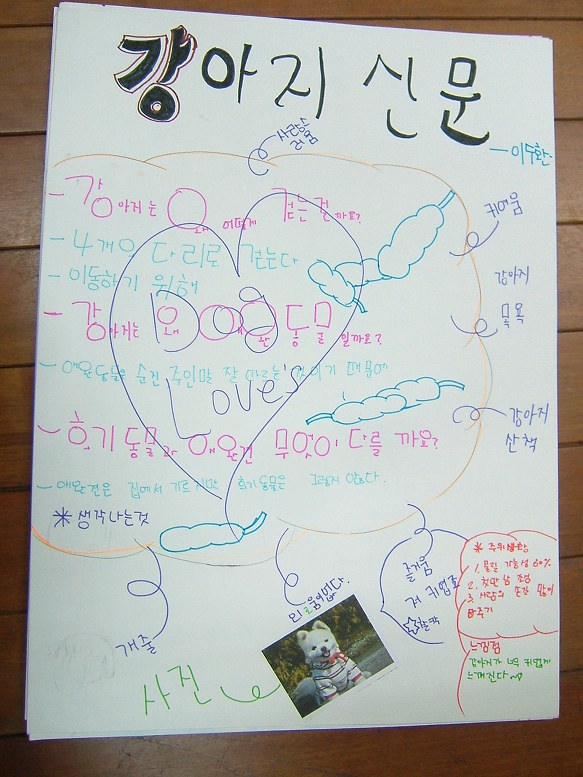 강아지 신문
사랑스러움
- 이두환
- 강아지는 왜 어떻게 걷는 걸까요?
귀여움
- 4개의 다리로 걷는다
- 이동하기 위해
강아지
목욕
- 강아지는 왜 애완동물일까요?
Dog
- 애완동물은 순전 주인말 잘 따르는 것이기 때문에
Love's
강아지
산책
- 유기동물과 애완견 무엇이 다를까요?
- 애완견은 집에서 기르지만 유기동물은 그렇지 않다.
* 생각나는것
개줄
외로움이없다.
즐거움
저 귀엽죠
* 주의사항
1. 물릴 가능성 60%
2. 첫만남 조심
3. 사람의 손길 많이
주기
느낌점
강아지가 너무 귀엽게
느껴진다~
사진